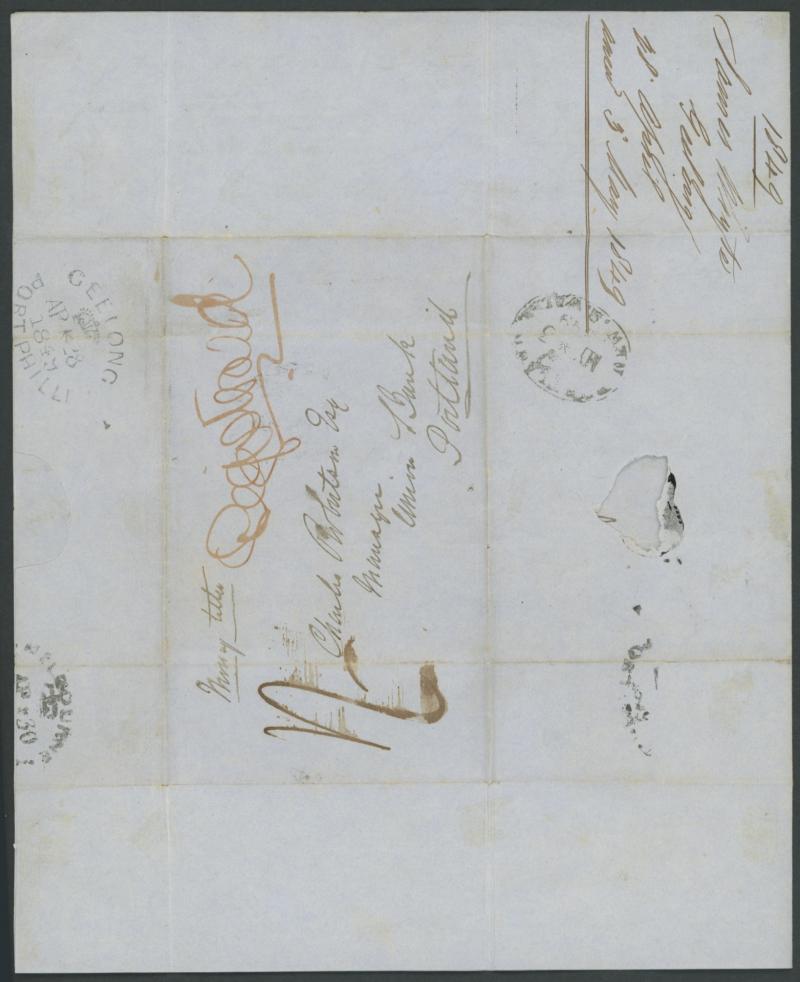 1849
James
Geelong
28 April
3 May 1849
Money letter
Registered
Charles Robertson Esq
Manager
Union Bank
Portland
GEELONG
AP * 28
1849
PORT PHILLIP
MELBOURNE
AP * 30